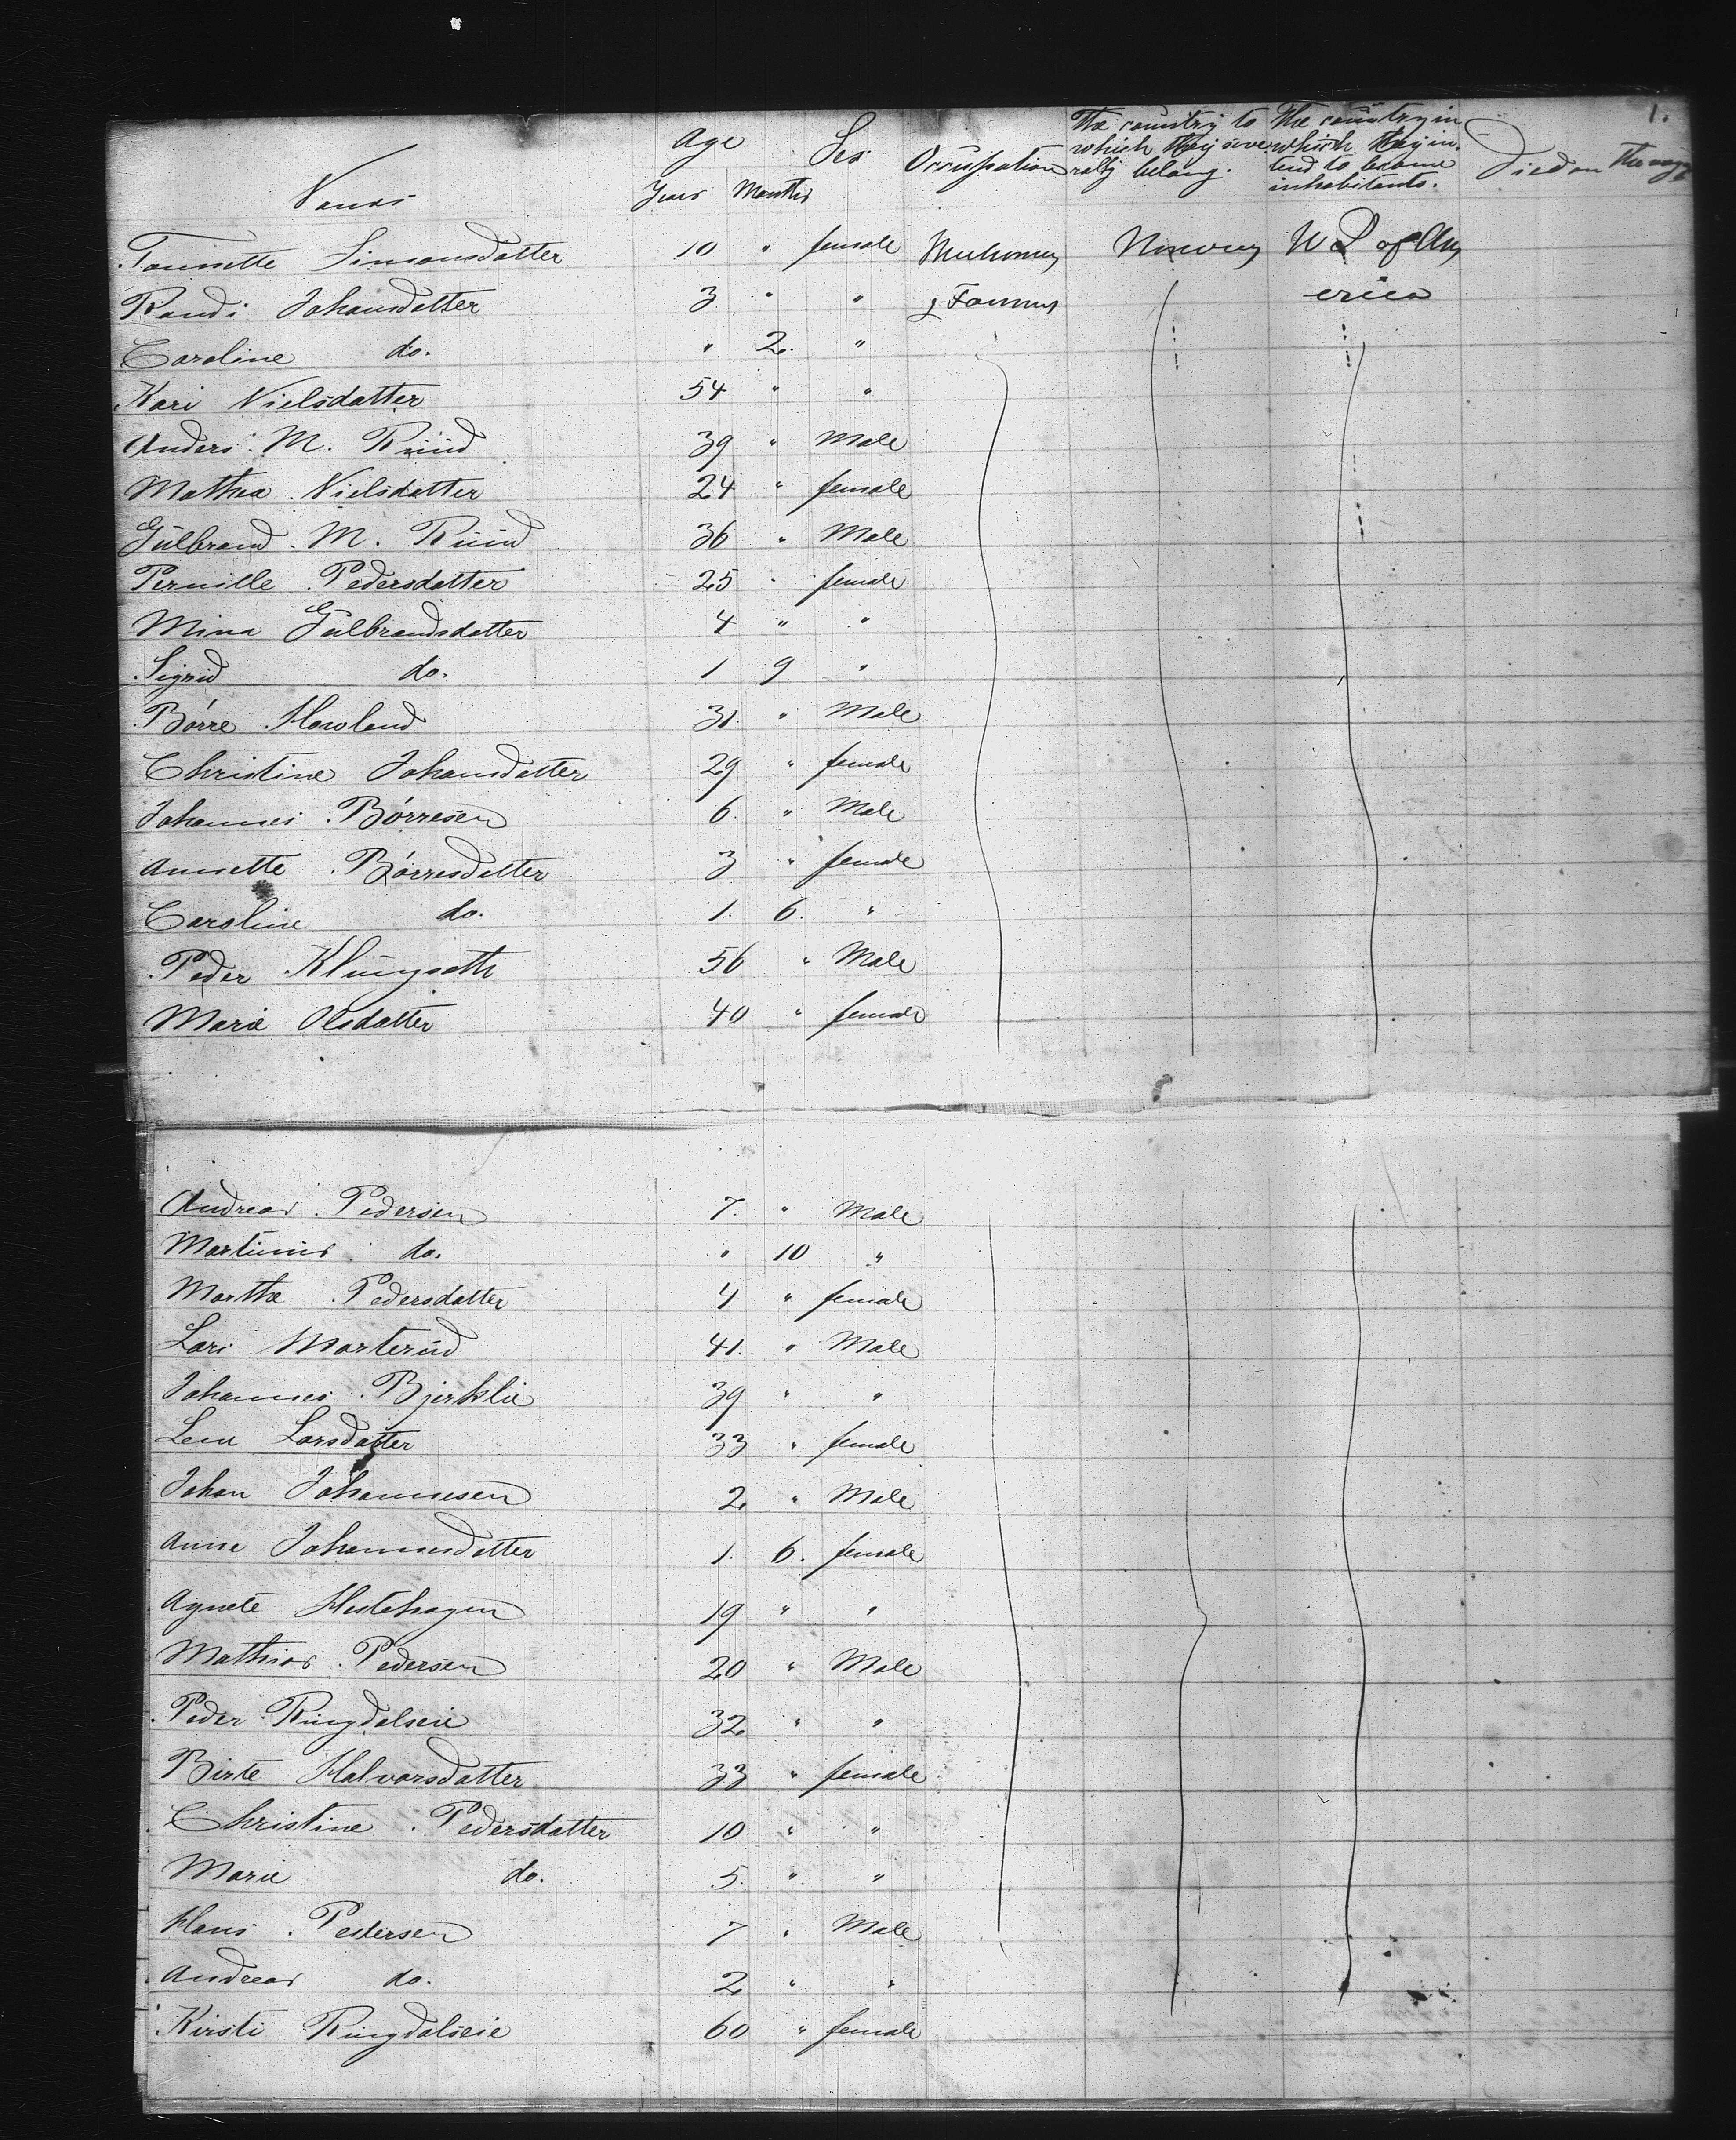 1.
Names Age Years Months Sex Occupation The country to which they severally belong. The country in which they intend to become inhabitants. Died on the voyage
Simonsdatter 10 " female Norway U S of Am
Randi Johansdatter 3 " " & Farmers erica
Caroline do. " 2. "
Kari Nielsdatter 54 " "
Anders M. Rüüd 39 " Male
Mathea Nielsdatter 24 " female
Gülbrand M. Rüüd 36 " Male
Pernille Pedersdatter 25 " female
Mina Gülbrandsdatter 4 " "
Sigrid do. 1 9 "
Börre Howland 31 " Male
Christine Johansdatter 29 " female
Johannes Börresen 6. " Male
Annette Börresdatter 3 " female
Caroline do. 1. 6. "
Peder Klüngseth 56 " Male
Marie Olsdatter 40 " female
Andreas Pedersen 7. " Male
Martinus do. " 10 "
Marthe Pedersdatter 4 " female
Lars Morterüd 41. " Male
Johannes Bjerklie 39 " "
Lene Larsdatter 33 " female
Johan Johannesen 2. " Male
Anne Johannesdatter 1. 6. female
Agnete Hestehagen 19 " "
Mathias Pedersen 20 " Male
Peder Ringdalseie 32. " "
Birte Halvorsdatter 33 " female
Christine Pedersdatter 10 " "
Marie do. 5. " "
Hans Pedersen 7 " Male
Andreas do. 2 " "
Kirsti Ringdalseie 60 " female